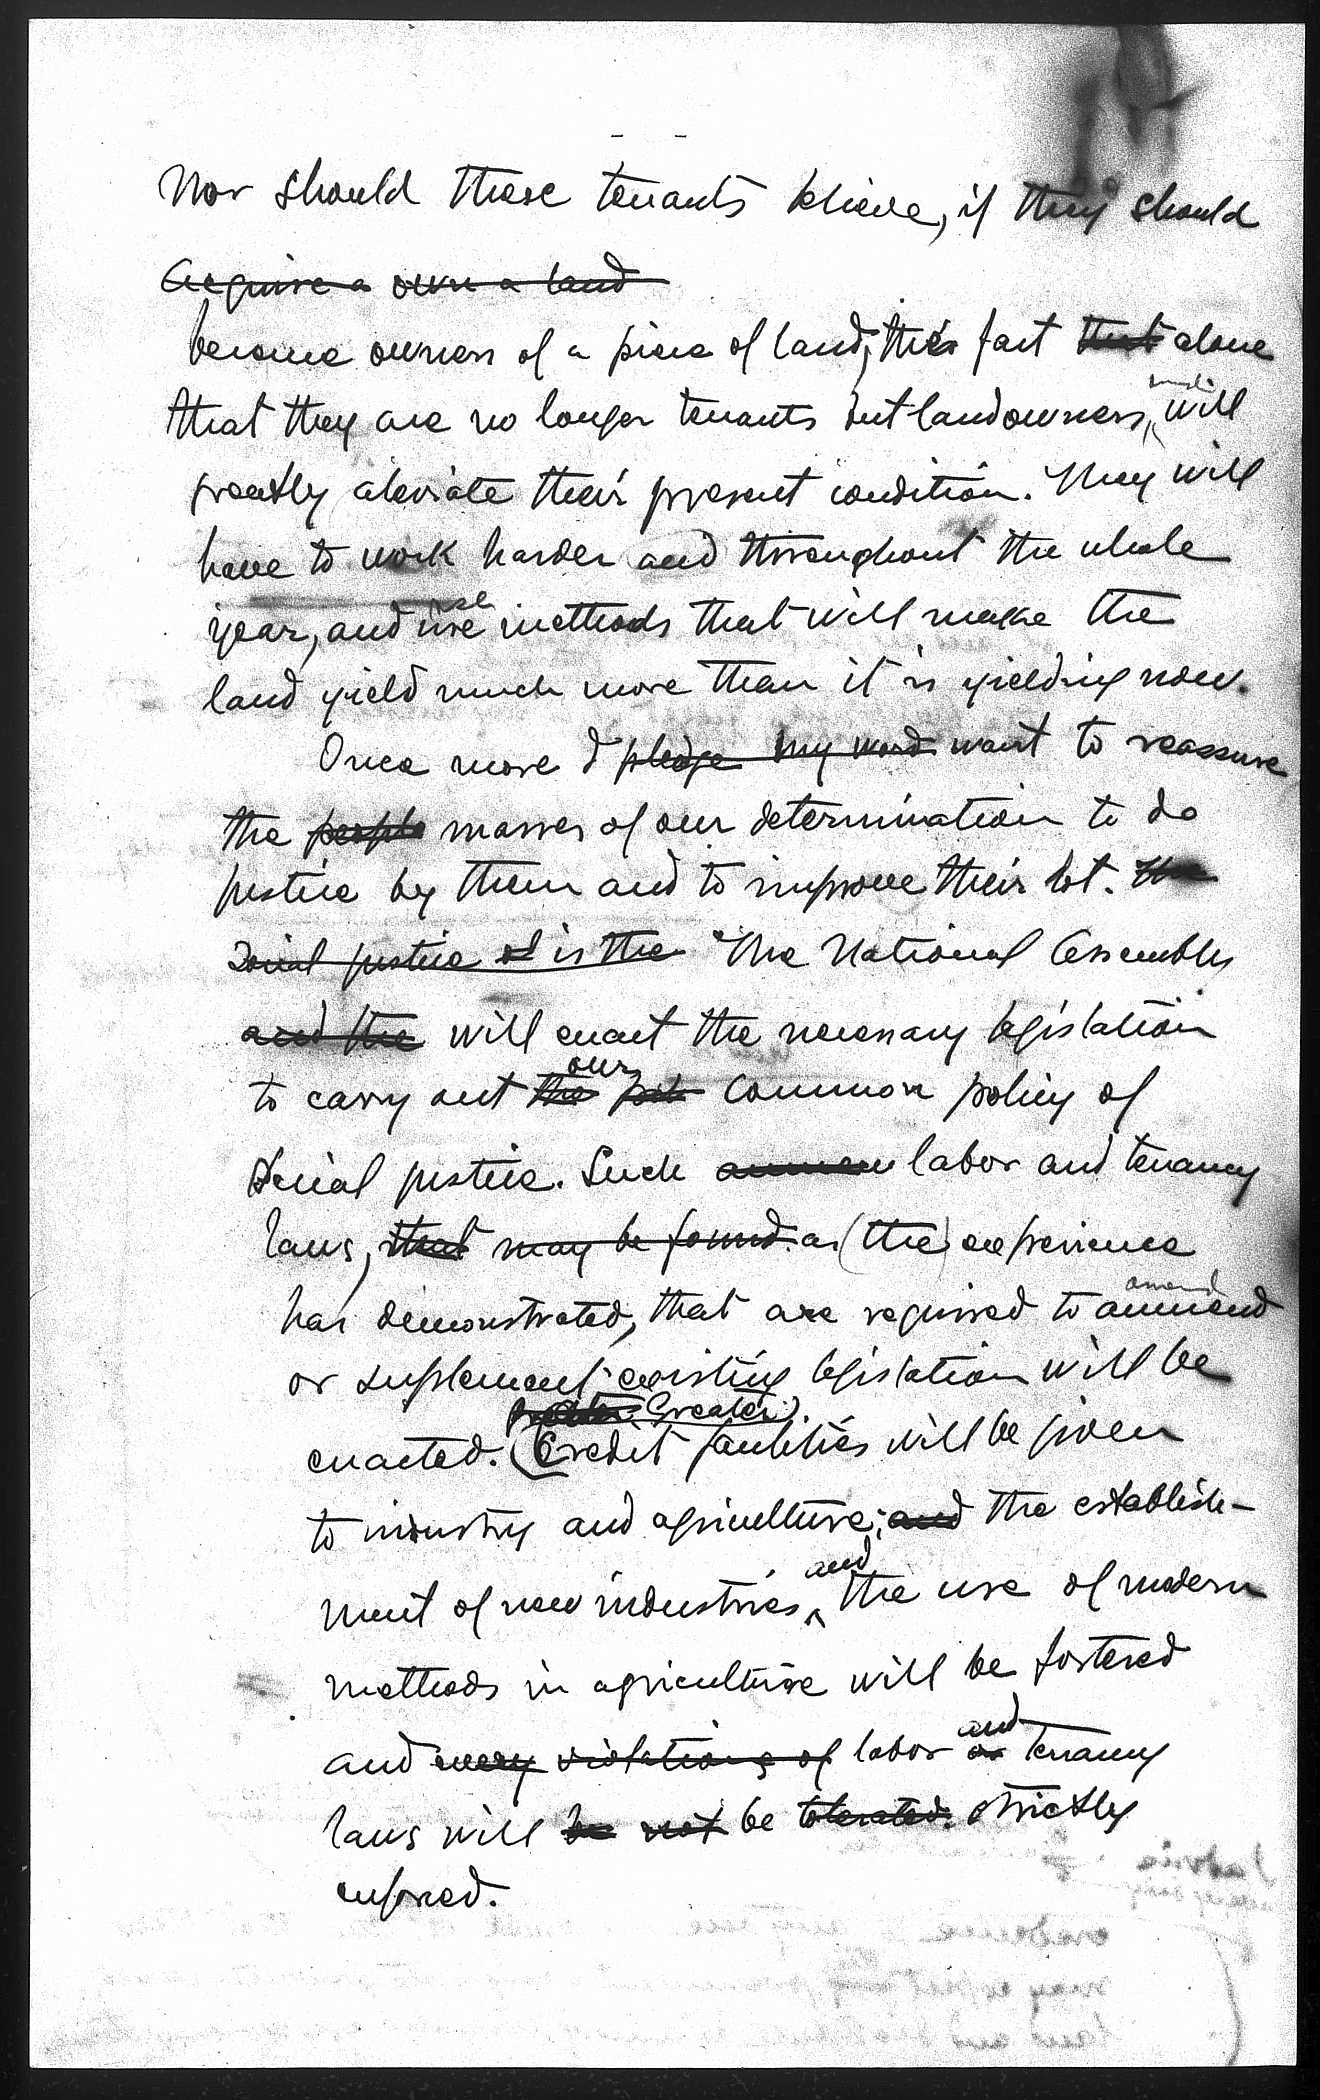 Nor should these tenants believe, if they should
Acquire a own a land
become owners of a piece of land, this fact that alone
that they are no longer tenants but landowners, will
greatly aleviate their present condition. They will
have to work harder and throughout the whole
use
year, and use methods that will make the
land yield much more than it is yielding now.
Once more I pledge my word want to reassure
the people masses of our determination to do
justice by them and to improve their lot. The
Social justice is the The National Assembly
and the will enact the necessary legislation
our
to carry out the common policy of
Social justice. Such labor and tenancy
laws, that may be found as (the) experience
amend
has demonstrated, that are required to ammend
or suplement existing legislation will be
greater Greater
enacted. (Credit facilities will be given
to industry and agriculture; and the establish-
and
ment of new industries, the use of modern
methods in agriculture will be fostered
and
and every violations of labor or tenancy
laws will be not be tolerated. strictly
enforced.